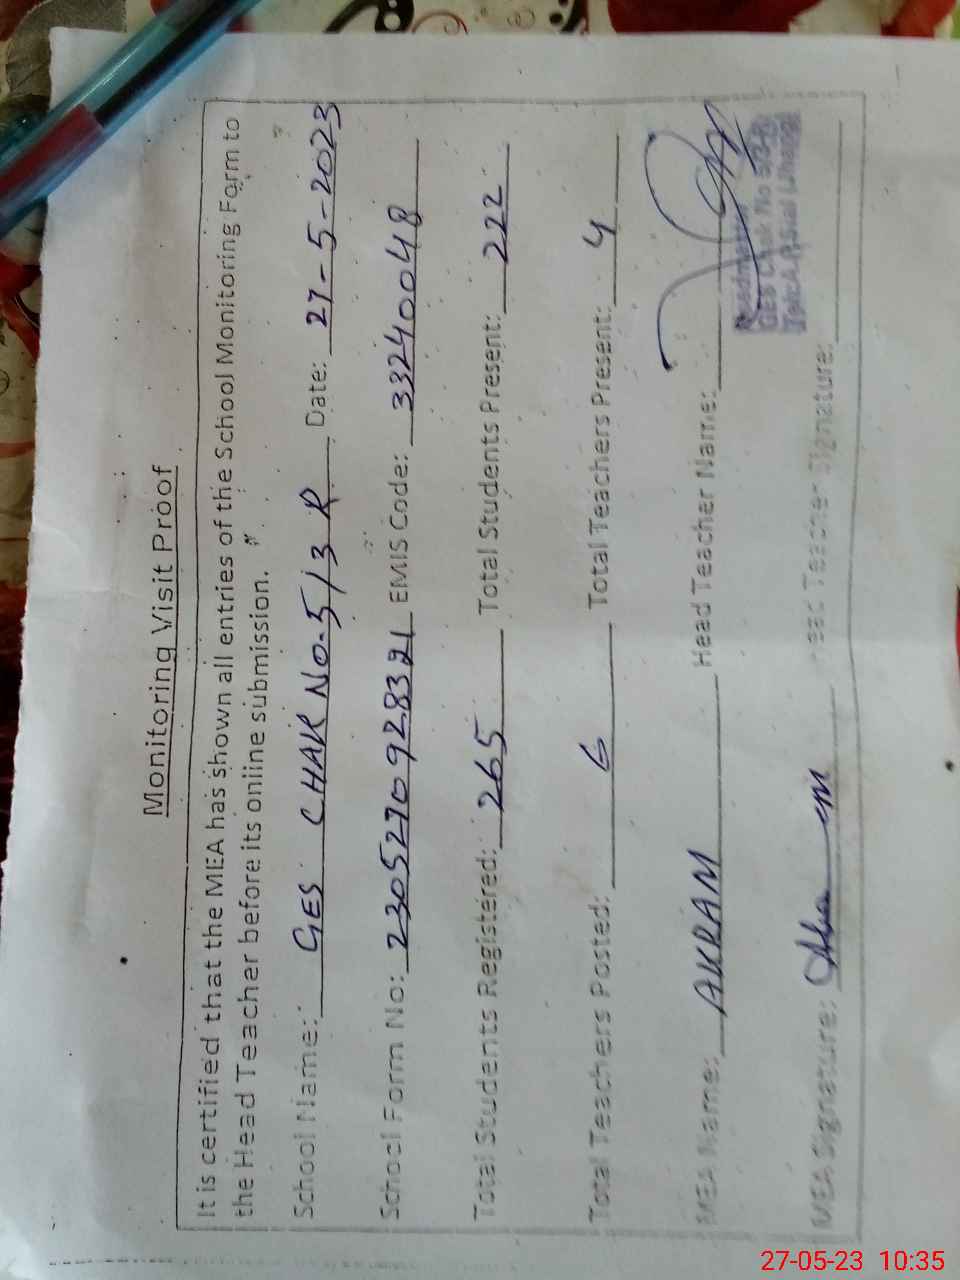 Monitoring Visit Proof
It is certified that the MEA has shown all entries of the School Monitoring Form to
the Head Teacher before its online submission.
School Name: GES CHAK NO. 5/3 R Date: 27-5-2023
School Form No: 2305270928321 EMIS Code: 33240048
Total Students Registered: 265 Total Students Present: 222
Total Teachers Posted: 6 Total Teachers Present: 4
MEA Name: AKRAM Head Teacher Name:
Headmaster
GES Chak No 5/3-R
Teh: A.P.Sial (Jhang)
MEA Signature: Head Teacher Signature:
27-05-23 10:35